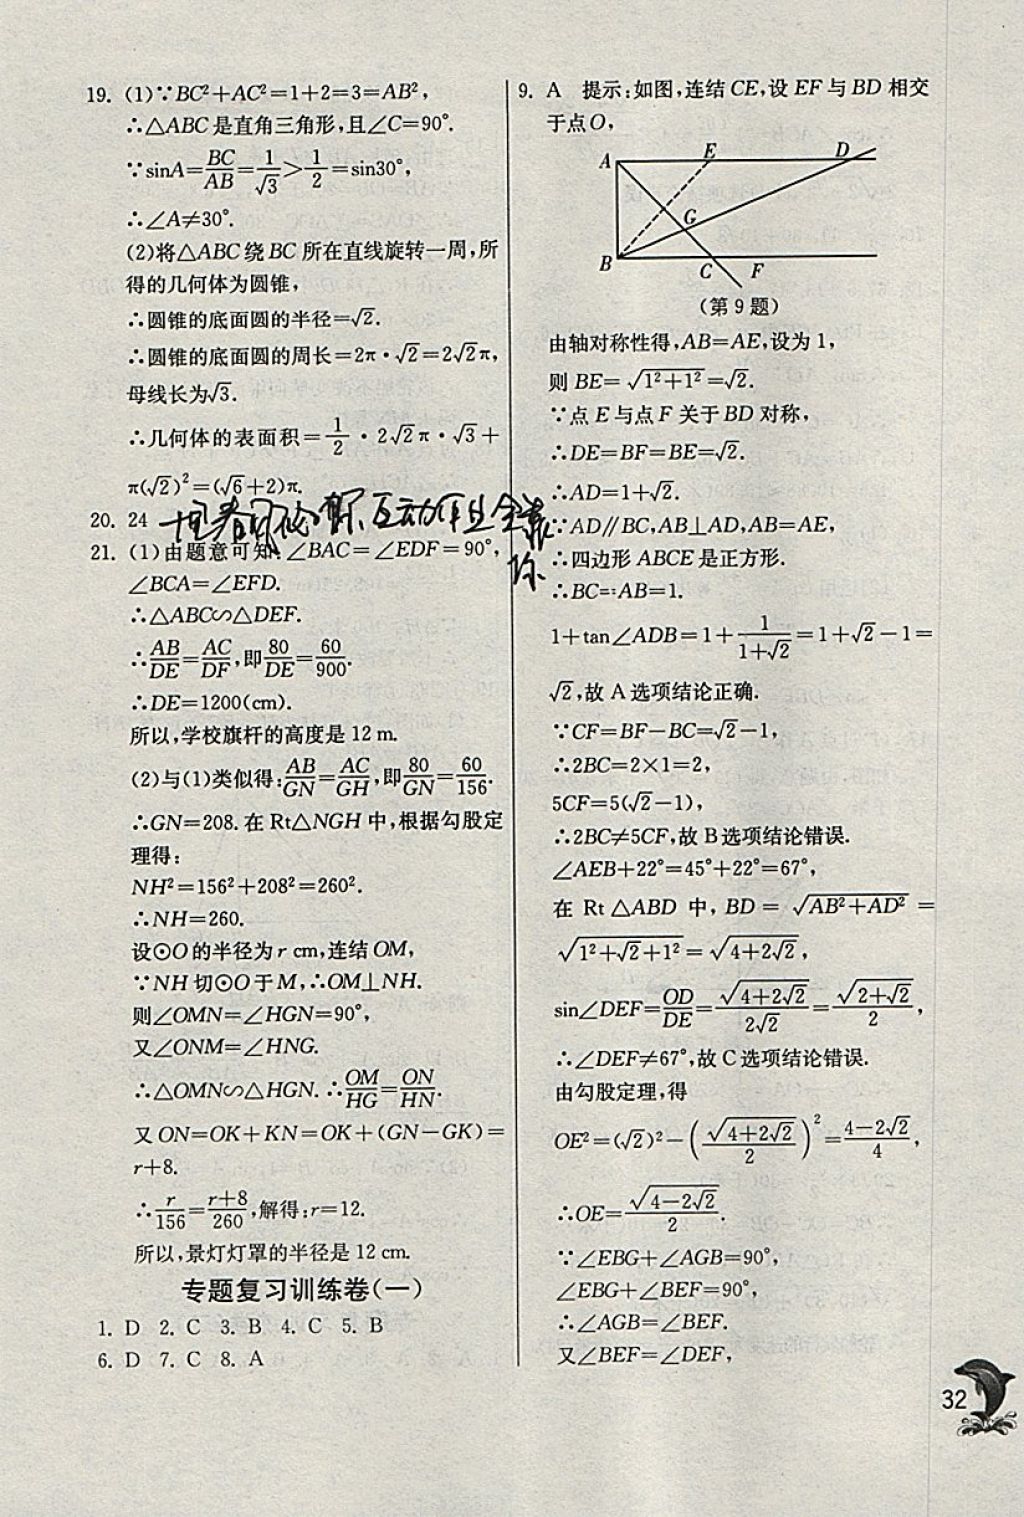 19. (1)∵BC²+AC²=1+2=3=AB²,
∴△ABC是直角三角形,且∠C=90°.
∵sinA=BC/AB=1/√3>1/2=sin30°,
∴∠A≠30°.
(2)将△ABC绕BC所在直线旋转一周,所
得的几何体为圆锥,
∴圆锥的底面圆的半径=√2.
∴圆锥的底面圆的周长=2π·√2=2√2π,
母线长为√3.
∴几何体的表面积=1/2·2√2π·√3+
π(√2)²=(√6+2)π.
20. 24
21. (1)由题意可知,∠BAC=∠EDF=90°,
∠BCA=∠EFD.
∴△ABC∽△DEF.
∴AB/DE=AC/DF,即80/DE=60/900.
∴DE=1200(cm).
所以,学校旗杆的高度是12 m.
(2)与(1)类似得:AB/GN=AC/GH,即80/GN=60/156.
∴GN=208.在Rt△NGH中,根据勾股定
理得:
NH²=156²+208²=260².
∴NH=260.
设⊙O的半径为r cm,连结OM,
∵NH切⊙O于M,∴OM⊥NH.
则∠OMN=∠HGN=90°,
又∠ONM=∠HNG.
∴△OMN∽△HGN.∴OM/HG=ON/HN.
又ON=OK+KN=OK+(GN−GK)=
r+8.
∴r/156=r+8/260,解得:r=12.
所以,景灯灯罩的半径是12 cm.
专题复习训练卷(一)
1. D 2. C 3. B 4. C 5. B
6. D 7. C 8. A
9. A 提示:如图,连结CE,设EF与BD相交
于点O,
A E D
G
B C F
(第9题)
由轴对称性得,AB=AE,设为1,
则BE=√(1²+1²)=√2.
∵点E与点F关于BD对称,
∴DE=BF=BE=√2.
∴AD=1+√2.
∵AD∥BC,AB⊥AD,AB=AE,
∴四边形ABCE是正方形.
∴BC=AB=1.
1+tan∠ADB=1+1/(1+√2)=1+√2−1=
√2,故A选项结论正确.
∵CF=BF−BC=√2−1,
∴2BC=2×1=2,
5CF=5(√2−1),
∴2BC≠5CF,故B选项结论错误.
∠AEB+22°=45°+22°=67°,
在Rt△ABD中,BD=√(AB²+AD²)=
√(1²+√2+1²)=√(4+2√2),
sin∠DEF=OD/DE=√(4+2√2)/2√2=√(2+√2)/2,
∴∠DEF≠67°,故C选项结论错误.
由勾股定理,得
OE²=(√2)²−(√(4+2√2)/2)²=(4−2√2)/4,
∴OE=√(4−2√2)/2.
∵∠EBG+∠AGB=90°,
∠EBG+∠BEF=90°,
∴∠AGB=∠BEF.
又∠BEF=∠DEF,
32